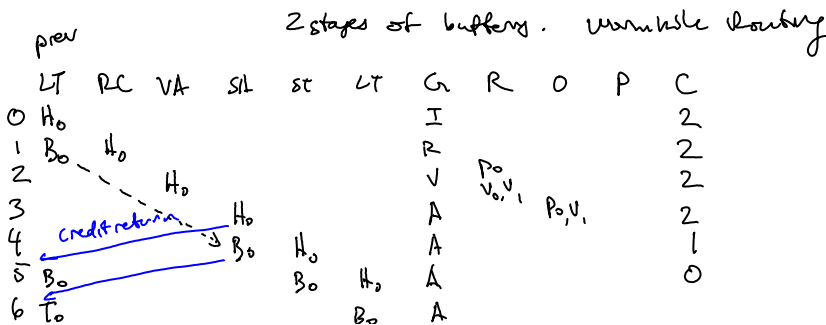 2 stages of buffering. Wormhole Routing
prev
LT RC VA SA ST LT G R O P C
0 H₀ I 2
1 B₀ H₀ R 2
2 H₀ V P₀ V₀,V₁ 2
3 H₀ A P₀,V₁ 2
credit return
4 B₀ H₀ A 1
5 B₀ B₀ H₀ A 0
6 T₀ B₀ A